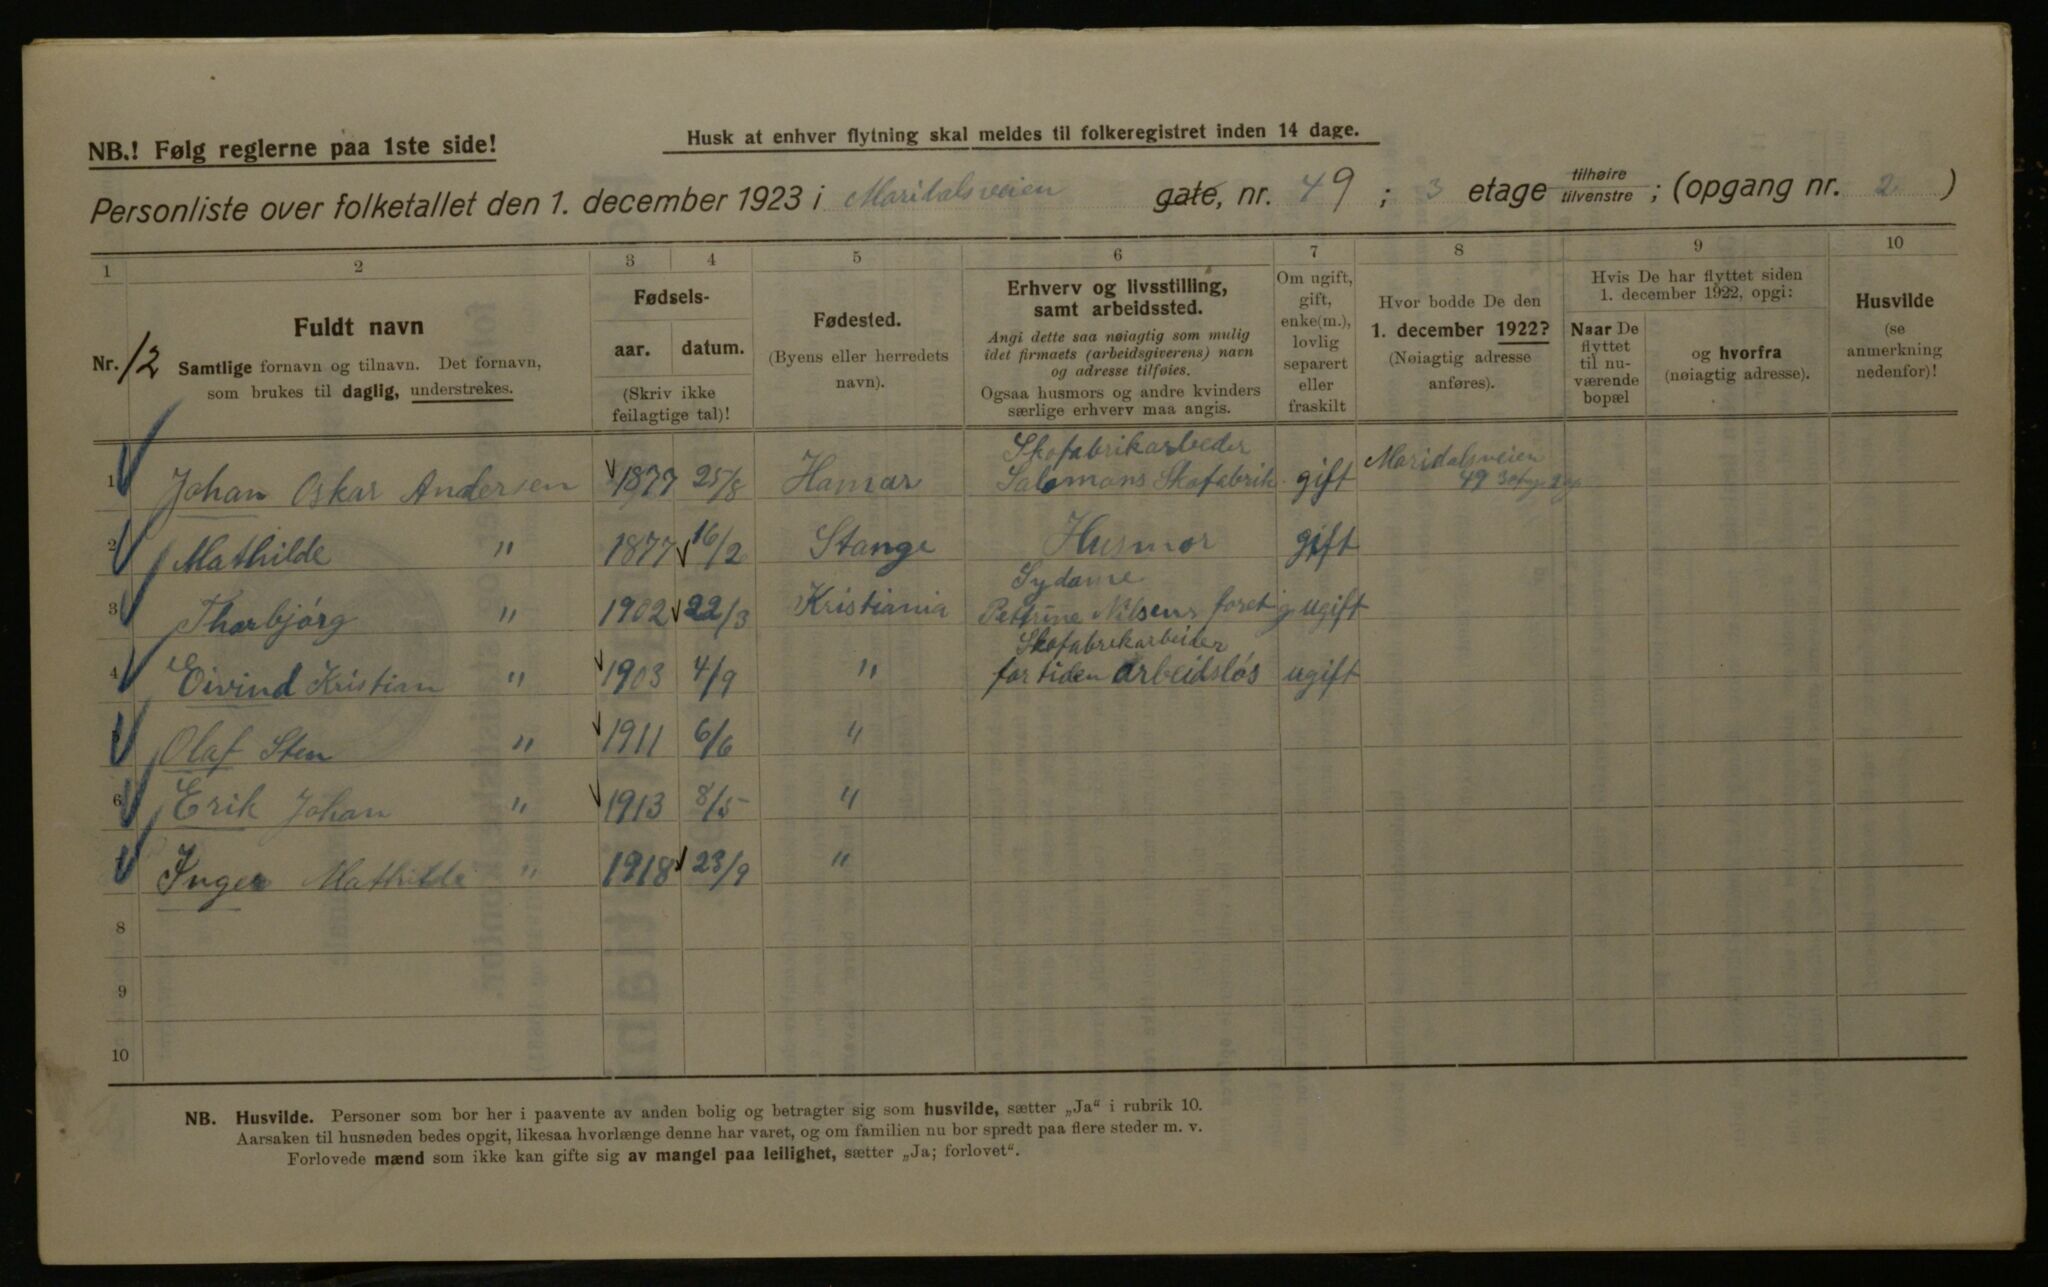 NB.! Følg reglerne paa 1ste side!
Husk at enhver flytning skal meldes til folkeregistret inden 14 dage.
Personliste over folketallet den 1. december 1923 i Maridalsveien gate, nr. 49 ; 3 etage tilhøire tilvenstre ; (opgang nr. 2 )
1 2 3 4 5 6 7 8 9 10
Nr. 12
Fuldt navn
Samtlige fornavn og tilnavn. Det fornavn,
som brukes til daglig, understrekes.
Fødsels-
aar. datum.
(Skriv ikke
feilagtige tal)!
Fødested.
(Byens eller herredets
navn).
Erhverv og livsstilling,
samt arbeidssted.
Angi dette saa nøiagtig som mulig
idet firmaets (arbeidsgiverens) navn
og adresse tilføies.
Ogsaa husmors og andre kvinders
særlige erhverv maa angis.
Om ugift,
gift,
enke(m.),
lovlig
separert
eller
fraskilt
Hvor bodde De den
1. december 1922?
(Nøiagtig adresse
anføres).
Hvis De har flyttet siden
1. december 1922, opgi:
Naar De
flyttet
til nu-
værende
bopæl
og hvorfra
(nøiagtig adresse).
Husvilde
(se
anmerkning
nedenfor)!
Skofabrikarbeder Maridalsveien
1 Johan Oskar Andersen 1877 25/8 Hamar Salomons Skofabrik gift 49
2 Mathilde " 1877 16/2 Stange Husmor gift
Sydame
3 Thorbjørg " 1902 22/3 Kristiania Pettrine Nilsens ugift
Skofabrikarbeider
4 Eivind Kristian " 1903 4/9 " for tiden arbeidsløs ugift
Olaf Sten " 1911 6/6 "
6 Erik Johan " 1913 8/5 "
Inger Mathilde " 1918 23/9 "
8
9
10
NB. Husvilde. Personer som bor her i paavente av anden bolig og betragter sig som husvilde, sætter „Ja“ i rubrik 10.
Aarsaken til husnøden bedes opgit, likesaa hvorlænge denne har varet, og om familien nu bor spredt paa flere steder m. v.
Forlovede mænd som ikke kan gifte sig av mangel paa leilighet, sætter „Ja; forlovet“.